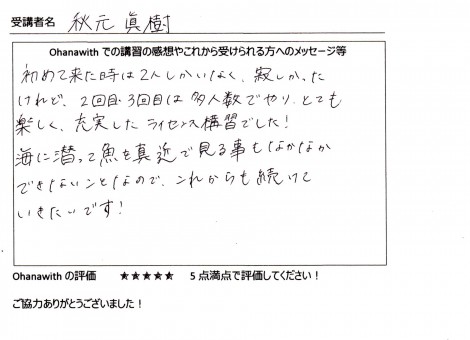 受講者名 秋元 眞樹
Ohanawith での講習の感想やこれから受けられる方へのメッセージ等
初めて来た時は2人しかいなく、寂しかった
けれど、2回目・3回目は多人数でやり、とても
楽しく、充実したライセンス講習でした!
海に潜って魚を真近で見る事もなかなか
できないことなので、これからも続けて
いきたいです!
Ohanawith の評価 ★★★★★ 5点満点で評価してください!
ご協力ありがとうございました!